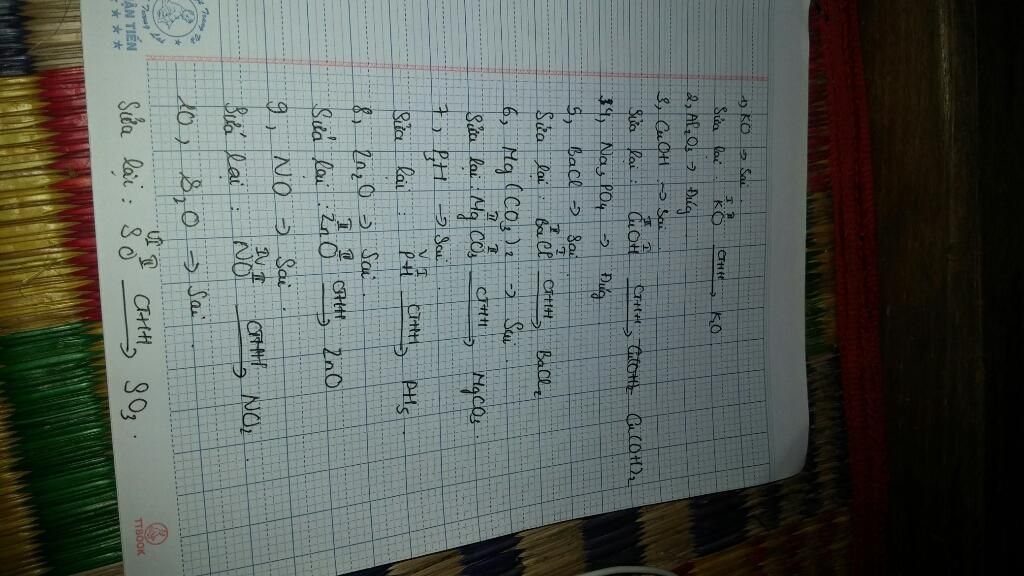 1) KO → Sai.
Sửa lại : I II KO CTHH → KO
2, Al2O3 → Đúg
3, CuOH → Sai
Sửa lại : II I CuOH CTHH → Cu(OH)2
4, Na3PO4 → Đúg
5, BaCl → Sai
Sửa lại : II I BaCl CTHH → BaCl2
6, Mg(CO3)2 → Sai.
Sửa lại : II II MgCO3 CTHH → MgCO3.
7, PH → Sai
Sửa lại : V I PH CTHH → PH5.
8, Zn2O → Sai.
Sửa lại : II II ZnO CTHH → ZnO
9, NO → Sai.
Sửa lại : IV II NO CTHH → NO2
10, S2O → Sai
Sửa lại : VI II SO CTHH → SO3.
TIẾN
TTBOOK